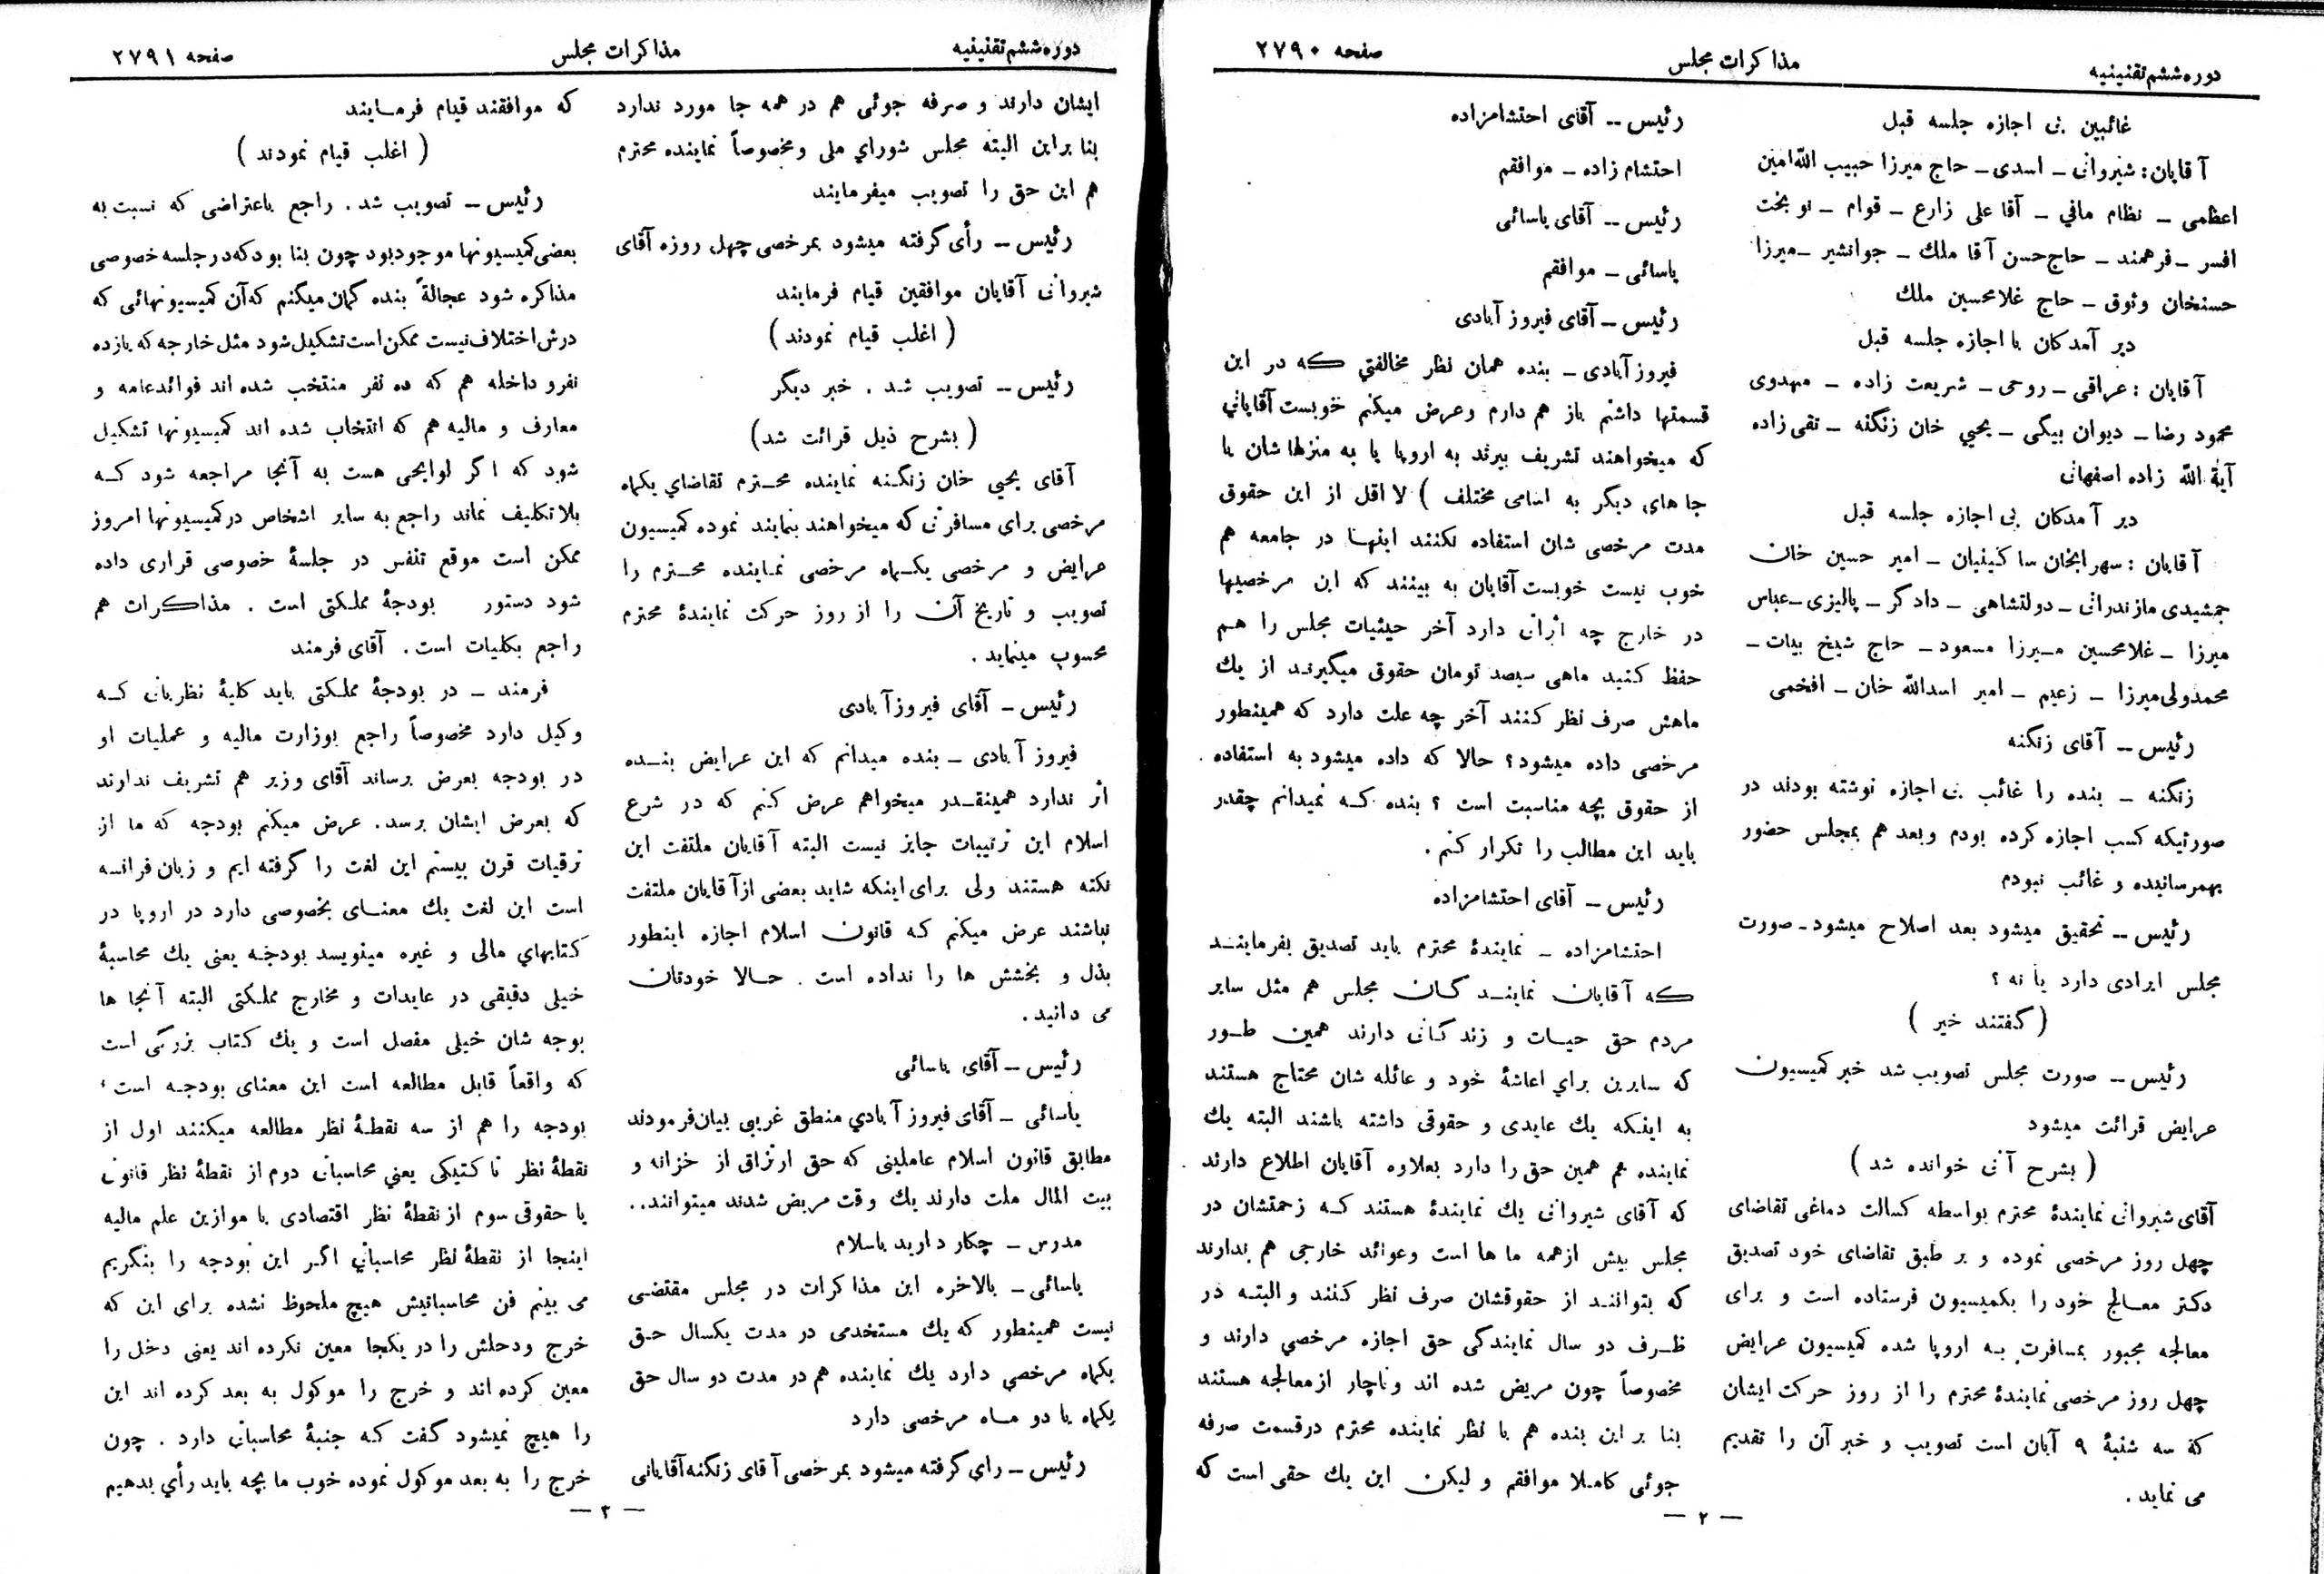 دوره ششم تقنینیه
مذاکرات مجلس
صفحه ۲۷۹۰
غائبین بی اجازه جلسه قبل
آقایان: شیروانی ـ اسدی ـ حاج میرزا حبیب الله امین
اعظمی ـ نظام مافي ـ آقا علی زارع ـ قوام ـ نوبخت
افسر ـ فرهمند ـ حاج حسن آقا ملك ـ جوانشیر ـ میرزا
حسنخان وثوق ـ حاج غلامحسین ملك
دیر آمدکان با اجازه جلسه قبل
آقایان: عراقی ـ روحی ـ شریعت زاده ـ مهدوی
محمود رضا ـ دیوان بیگی ـ یحیي خان زنگنه ـ تقی زاده
آیة الله زاده اصفهانی
دیر آمدکان بی اجازه جلسه قبل
آقایان: سهرابخان ساکینیان ـ امیر حسین خان
جمشیدی مازندرانی ـ دولتشاهی ـ دادگر ـ پالیزی ـ عباس
میرزا ـ غلامحسین میرزا مسعود ـ حاج شیخ بیات ـ
محمدولی میرزا ـ زعیم ـ امیر اسدالله خان ـ افخمی
رئیس ــ آقای زنگنه
زنگنه ـ بنده را غائب بی اجازه نوشته بودند در
صورتیکه کسب اجازه کرده بودم وبعد هم بمجلس حضور
بهمرسانیده و غائب نبودم
رئیس ــ تحقیق میشود بعد اصلاح میشود ـ صورت
مجلس ایرادی دارد یا نه ؟
( گفتند خیر )
رئیس ــ صورت مجلس تصویب شد خبر کمیسیون
عرایض قرائت میشود
( بشرح آتی خوانده شد )
آقای شیروانی نمایندۀ محترم بواسطه کسالت دماغی تقاضای
چهل روز مرخصی نموده و بر طبق تقاضای خود تصدیق
دکتر معالج خود را بکمیسیون فرستاده است و برای
معالجه مجبور بمسافرت به اروپا شده کمیسیون عرایض
چهل روز مرخصی نمایندۀ محترم را از روز حرکت ایشان
که سه شنبۀ ۹ آبان است تصویب و خبر آن را تقدیم
می نماید .
رئیس ــ آقای احتشامزاده
احتشام زاده ـ موافقم
رئیس ــ آقای یاسائی
یاسائی ـ موافقم
رئیس ــ آقای فیروز آبادی
فیروز آبادی ـ بنده همان نظر مخالفتي که در این
قسمتها داشتم باز هم دارم وعرض میکنم خوبست آقایاني
که میخواهند تشریف ببرند به اروپا یا به منزلهاشان یا
جاهای دیگر به اسامی مختلف ) لااقل از این حقوق
مدت مرخصی شان استفاده نکنند اینها در جامعه هم
خوب نیست خوبست آقایان به بینند که این مرخصیها
در خارج چه اثرات دارد آخر حیثیات مجلس را هم
حفظ کنید ماهی سیصد تومان حقوق میگیرند از یك
ماهش صرف نظر کنند آخر چه علت دارد که همینطور
مرخصی داده میشود؟ حالا که داده میشود به استفاده
از حقوق بچه مناسبت است ؟ بنده که نمیدانم چقدر
باید این مطالب را تکرار کنم .
رئیس ــ آقای احتشامزاده
احتشامزاده ـ نمایندۀ محترم باید تصدیق بفرمایند
که آقایان نمایندگان مجلس هم مثل سایر
مردم حق حیات و زندگانی دارند همین طور
که سایرین براي اعاشۀ خود و عائله شان محتاج هستند
به اینکه یك عایدی و حقوقی داشته باشند البته یك
نماینده هم همین حق را دارد بعلاوه آقایان اطلاع دارند
که آقای شیروانی یك نمایندۀ هستند که زحمتشان در
مجلس بیش ازهمه ماها است وعوائد خارجی هم ندارند
که بتوانند از حقوقشان صرف نظر کنند والبته در
ظرف دو سال نمایندگی حق اجازه مرخصي دارند و
مخصوصاً چون مریض شده اند وناچار ازمعالجه هستند
بنا بر این بنده هم با نظر نماینده محترم درقسمت صرفه
جوئی کاملا موافقم و لیکن این یك حقی است که
— ۲ —
دوره ششم تقنینیه
مذاکرات مجلس
صفحه ۲۷۹۱
ایشان دارند و صرفه جوئی هم در همه جا مورد ندارد
بنا براین البته مجلس شورای ملی ومخصوصاً نماینده محترم
هم این حق را تصویب میفرمایند
رئیس ــ رأی گرفته میشود بمرخصی چهل روزه آقای
شیروانی آقایان موافقین قیام فرمایند
( اغلب قیام نمودند )
رئیس ــ تصویب شد . خبر دیگر
( بشرح ذیل قرائت شد )
آقای یحیی خان زنگنه نماینده محترم تقاضاي یکماه
مرخصی برای مسافرتی که میخواهند بنمایند نموده کمیسیون
عرایض و مرخصی یکماه مرخصی نماینده محترم را
تصویب و تاریخ آن را از روز حرکت نمایندۀ محترم
محسوب مینماید .
رئیس ــ آقای فیروزآبادی
فیروز آبادی ـ بنده میدانم که این عرایض بنده
اثر ندارد همینقدر میخواهم عرض کنم که در شرع
اسلام این ترتیبات جایز نیست البته آقایان ملتفت این
نکته هستند ولی برای اینکه شاید بعضی ازآقایان ملتفت
نباشند عرض میکنم که قانون اسلام اجازه اینطور
بذل و بخشش ها را نداده است . حالا خودتان
می دانید .
رئیس ــ آقای یاسائی
یاسائی ـ آقای فیروز آبادي منطق غریبي بیان فرمودند
مطابق قانون اسلام عاملینی که حق ارتزاق از خزانه و
بیت المال ملت دارند یك وقت مریض شدند میتوانند..
مدرس ـ چکار دارید باسلام
یاسائی ـ بالاخره این مذاکرات در مجلس مقتضی
نیست همینطور که یك مستخدمی در مدت یکسال حق
یکماه مرخصي دارد یك نماینده هم در مدت دو سال حق
یکماه یا دو ماه مرخصی دارد
رئیس ــ راي گرفته میشود بمرخصی آقای زنگنه آقایانی
که موافقند قیام فرمایند
( اغلب قیام نمودند )
رئیس ــ تصویب شد . راجع باعتراضی که نسبت به
بعضی کمیسیونها موجود بود چون بنا بود که در جلسه خصوصی
مذاکره شود عجالةً بنده گمان میکنم که آن کمیسیونهائی که
درش اختلاف نیست ممکن است تشکیل شود مثل خارجه که یازده
نفرو داخله هم که ده نفر منتخب شده اند فوائدعامه و
معارف و مالیه هم که انتخاب شده اند کمیسیونها تشکیل
شود که اگر لوایحی هست به آنجا مراجعه شود که
بلاتکلیف نماند راجع به سایر اشخاص درکمیسیونها امروز
ممکن است موقع تنفس در جلسۀ خصوصی قراری داده
شود دستور بودجۀ مملکتی است . مذاکرات هم
راجع بکلیات است . آقای فرمند
فرمند ـ در بودجۀ مملکتی باید کلیۀ نظریاتی که
وکیل دارد مخصوصاً راجع بوزارت مالیه و عملیات او
در بودجه بعرض برساند آقای وزیر هم تشریف ندارند
که بعرض ایشان برسد. عرض میکنم بودجه که ما از
ترقیات قرن بیستم این لغت را گرفته ایم و زبان فرانسه
است این لغت یك معنای بخصوصی دارد در اروپا در
کتابهاي مالی و غیره مینویسد بودجه یعنی یك محاسبۀ
خیلی دقیقی در عایدات و مخارج مملکتی البته آنجا ها
بوجه شان خیلی مفصل است و یك کتاب بزرگی است
که واقعاً قابل مطالعه است این معنای بودجه است ،
بودجه را هم از سه نقطۀ نظر مطالعه میکنند اول از
نقطۀ نظر تاکتیکی یعني محاسباتی دوم از نقطۀ نظر قانونی
یا حقوقی سوم از نقطۀ نظر اقتصادی یا موازین علم مالیه
اینجا از نقطۀ نظر محاسباتي اگر این بودجه را بنگریم
می بینم فن محاسباتیش هیچ ملحوظ نشده برای این که
خرج ودخلش را در یکجا معین نکرده اند یعنی دخل را
معین کرده اند و خرج را موکول به بعد کرده اند این
را هیچ نمیشود گفت که جنبۀ محاسباتی دارد . چون
خرج را به بعد موکول نموده خوب ما بچه باید رأي بدهیم
— ۳ —